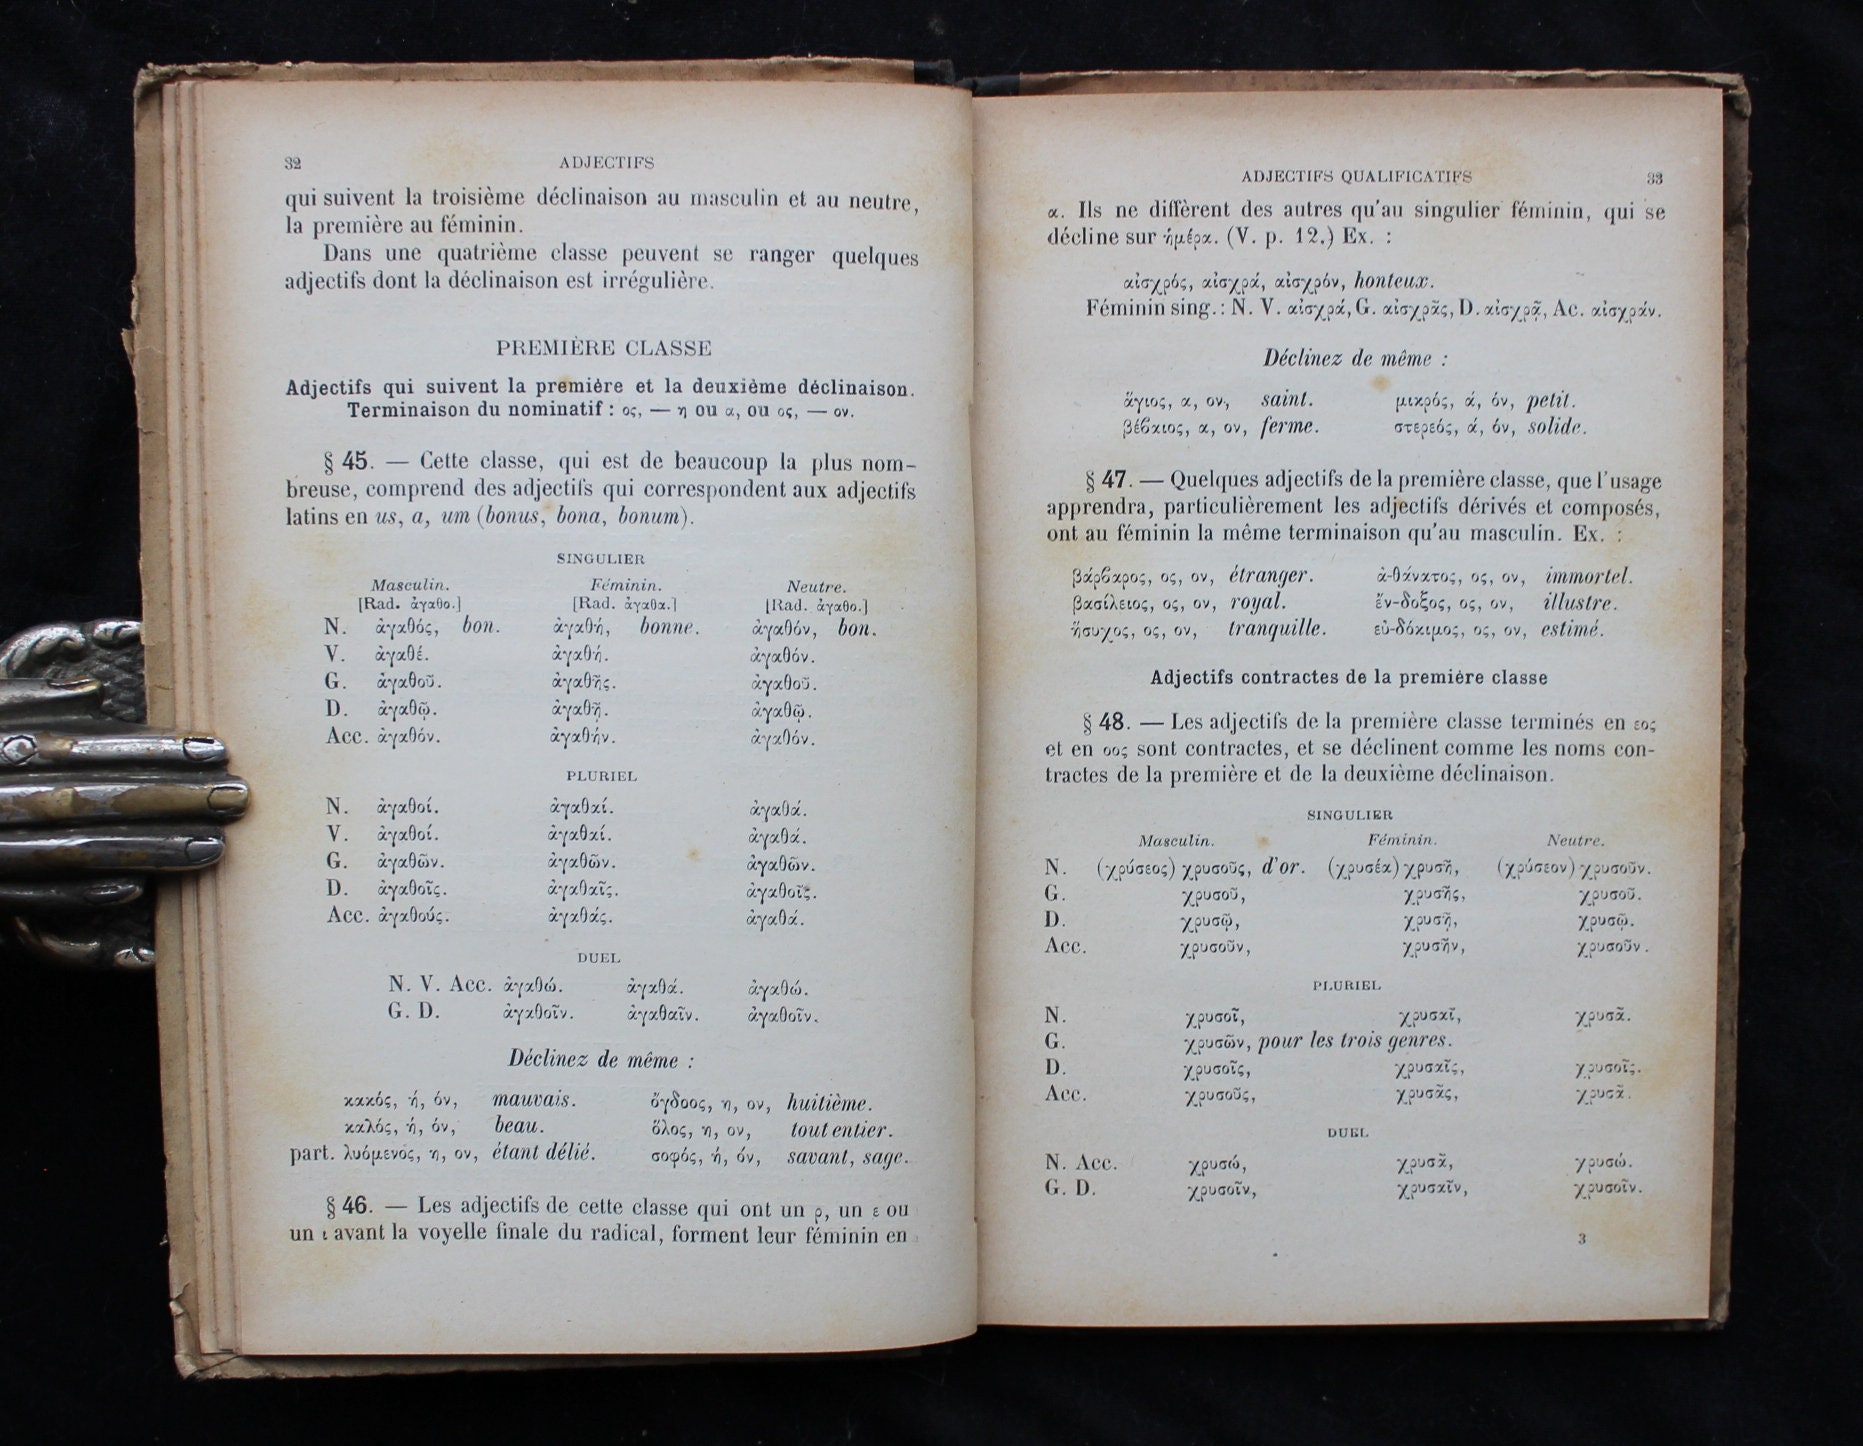 32 ADJECTIFS
qui suivent la troisième déclinaison au masculin et au neutre,
la première au féminin.
Dans une quatrième classe peuvent se ranger quelques
adjectifs dont la déclinaison est irrégulière.
PREMIÈRE CLASSE
Adjectifs qui suivent la première et la deuxième déclinaison.
Terminaison du nominatif : ος, — η ου α, ου ος, — ον.
§ 45. — Cette classe, qui est de beaucoup la plus nom-
breuse, comprend des adjectifs qui correspondent aux adjectifs
latins en us, a, um (bonus, bona, bonum).
SINGULIER
Masculin. Féminin. Neutre.
[Rad. ἀγαθο.] [Rad. ἀγαθα.] [Rad. ἀγαθο.]
N. ἀγαθός, bon. ἀγαθή, bonne. ἀγαθόν, bon.
V. ἀγαθέ. ἀγαθή. ἀγαθόν.
G. ἀγαθοῦ. ἀγαθῆς. ἀγαθοῦ.
D. ἀγαθῷ. ἀγαθῇ. ἀγαθῷ.
Acc. ἀγαθόν. ἀγαθήν. ἀγαθόν.
PLURIEL
N. ἀγαθοί. ἀγαθαί. ἀγαθά.
V. ἀγαθοί. ἀγαθαί. ἀγαθά.
G. ἀγαθῶν. ἀγαθῶν. ἀγαθῶν.
D. ἀγαθοῖς. ἀγαθαῖς. ἀγαθοῖς.
Acc. ἀγαθούς. ἀγαθάς. ἀγαθά.
DUEL
N. V. Acc. ἀγαθώ. ἀγαθά. ἀγαθώ.
G. D. ἀγαθοῖν. ἀγαθαῖν. ἀγαθοῖν.
Déclinez de même :
κακός, ή, όν, mauvais. ὄγδοος, η, ον, huitième.
καλός, ή, όν, beau. ὅλος, η, ον, tout entier.
part. λυόμενός, η, ον, étant délié. σοφός, ή, όν, savant, sage.
§ 46. — Les adjectifs de cette classe qui ont un ρ, un ε ou
un ι avant la voyelle finale du radical, forment leur féminin en
ADJECTIFS QUALIFICATIFS 33
α. Ils ne diffèrent des autres qu'au singulier féminin, qui se
décline sur ἡμέρα. (V. p. 12.) Ex. :
αἰσχρός, αἰσχρά, αἰσχρόν, honteux.
Féminin sing.: N. V. αἰσχρά, G. αἰσχρᾶς, D. αἰσχρᾷ, Ac. αἰσχράν.
Déclinez de même :
ἅγιος, α, ον, saint. μικρός, ά, όν, petit.
βέϐαιος, α, ον, ferme. στερεός, ά, όν, solide.
§ 47. — Quelques adjectifs de la première classe, que l'usage
apprendra, particulièrement les adjectifs dérivés et composés,
ont au féminin la même terminaison qu'au masculin. Ex. :
βάρϐαρος, ος, ον, étranger. ἀ-θάνατος, ος, ον, immortel.
βασίλειος, ος, ον, royal. ἔν-δοξος, ος, ον, illustre.
ἥσυχος, ος, ον, tranquille. εὐ-δόκιμος, ος, ον, estimé.
Adjectifs contractes de la première classe
§ 48. — Les adjectifs de la première classe terminés en εος
et en οος sont contractes, et se déclinent comme les noms con-
tractes de la première et de la deuxième déclinaison.
SINGULIER
Masculin. Féminin. Neutre.
N. (χρύσεος) χρυσοῦς, d'or. (χρυσέα) χρυσῆ, (χρύσεον) χρυσοῦν.
G. χρυσοῦ, χρυσῆς, χρυσοῦ.
D. χρυσῷ, χρυσῇ, χρυσῷ.
Acc. χρυσοῦν, χρυσῆν, χρυσοῦν.
PLURIEL
N. χρυσοῖ, χρυσαῖ, χρυσᾶ.
G. χρυσῶν, pour les trois genres.
D. χρυσοῖς, χρυσαῖς, χρυσοῖς.
Acc. χρυσοῦς, χρυσᾶς, χρυσᾶ.
DUEL
N. Acc. χρυσώ, χρυσᾶ, χρυσώ.
G. D. χρυσοῖν, χρυσαῖν, χρυσοῖν.
3